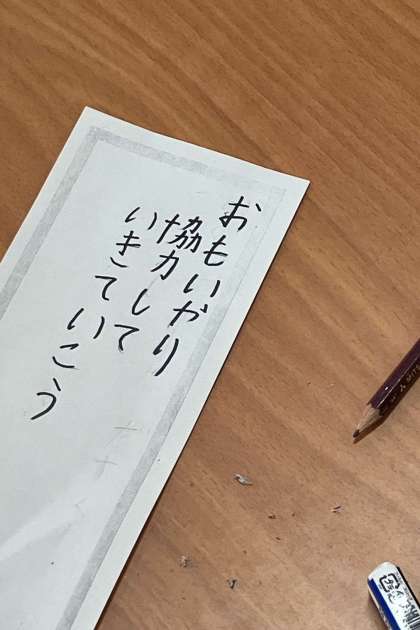 おもいやり
協力して
いきていこう